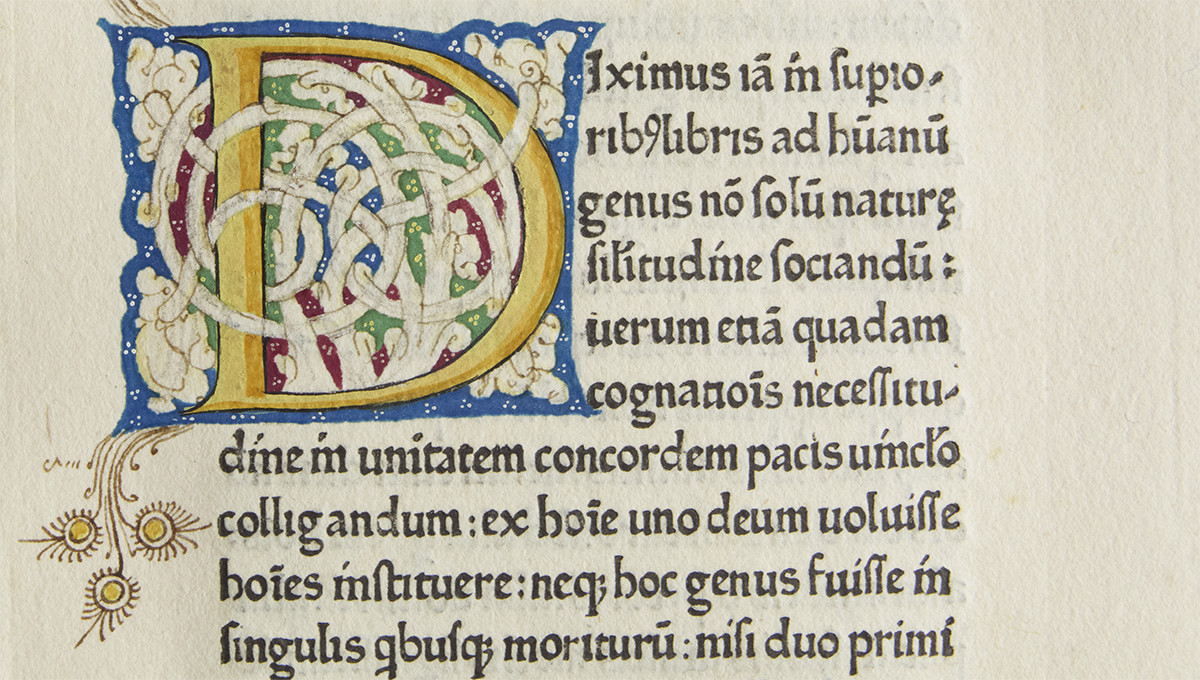 DIximus iā in supio-
ribꝯ libris ad hūanū
genus nō solū naturę
silitudine sociandū:
uerum etiā quadam
cognatiōis necessitu-
dine in unitatem concordem pacis uinclo
colligandum: ex hoīe uno deum uoluisse
hoīes instituere: neq; hoc genus fuisse in
singulis qbusq; moriturū: nisi duo primi